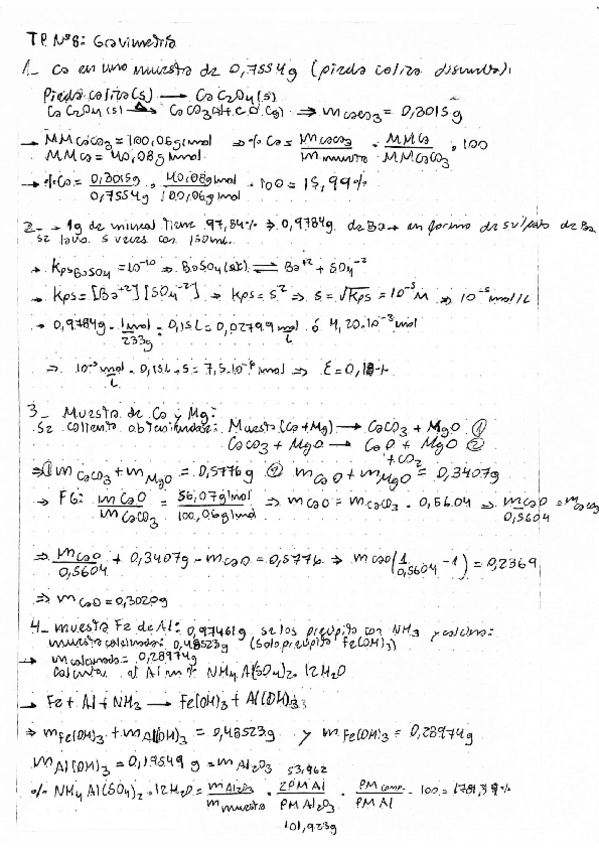 T.P. Nº8: Gravimetría
1_ Ca en una muestra de 0,7554g (piedra caliza disuelta):
Piedra caliza(s) → CaC2O4(s)
CaC2O4(s) → CaCO3(s)+C.O.(g) ⇒ mCaCO3 = 0,3015g
→ MMCaCO3 = 100,06g/mol ⇒ % Ca = mCaCO3/m muestra · MMCa/MMCaCO3 · 100
MMCa = 40,08g/mol
→ %Ca = 0,3015g/0,7554g · 40,08g/mol/100,06g/mol · 100 = 15,99%
2_ → 1g de mineral tiene 97,84% ⇒ 0,9784g. de Ba → en forma de sulfato de Ba.
Se lava 5 veces con 150mL.
→ KpsBaSO4 = 10^-10 ⇒ BaSO4(s) ⇌ Ba+2 + SO4-2
→ Kps = [Ba+2][SO4-2] → Kps = s^2 ⇒ s = √Kps = 10^-5 M ⇒ 10^-5 mol/L
→ 0,9784g · 1mol/233g : 0,15L = 0,02799 mol/L ó 4,20·10^-3 mol
⇒ 10^-5 mol/L · 0,15L · 5 = 7,5·10^-6 mol ⇒ E = 0,18%
3_ Muestra de Ca y Mg:
Se calienta obteniendose: Muestra(Ca+Mg) → CaCO3 + MgO ①
CaCO3 + MgO → CaO + MgO ②
+CO2
⇒① mCaCO3 + mMgO = 0,5776g ② mCaO + mMgO = 0,3407g
→ FG: mCaO/mCaCO3 = 56,07g/mol/100,06g/mol ⇒ mCaO = mCaCO3 · 0,5604 ⇒ mCaO/0,5604 = mCaCO3
⇒ mCaO/0,5604 + 0,3407g - mCaO = 0,5776 ⇒ mCaO(1/0,5604 - 1) = 0,2369
⇒ mCaO = 0,3020g
4_ muestra Fe de Al: 0,97461g se los precipita con NH3 y calcina:
muestra calcinada: 0,48523g (Solo precipita Fe(OH)3)
→ m calcinada = 0,28974g
Calcular el Al en % NH4Al(SO4)2·12H2O
→ Fe + Al + NH3 → Fe(OH)3 + Al(OH)3
⇒ mFe(OH)3 + mAl(OH)3 = 0,48523g y mFe(OH)3 = 0,28974g
mAl(OH)3 = 0,19549g = mAl2O3
53,962
% NH4Al(SO4)2·12H2O = mAl2O3/m muestra · 2PMAl/PMAl2O3 · PMcomp./PMAl · 100 = 178,39%
101,923g